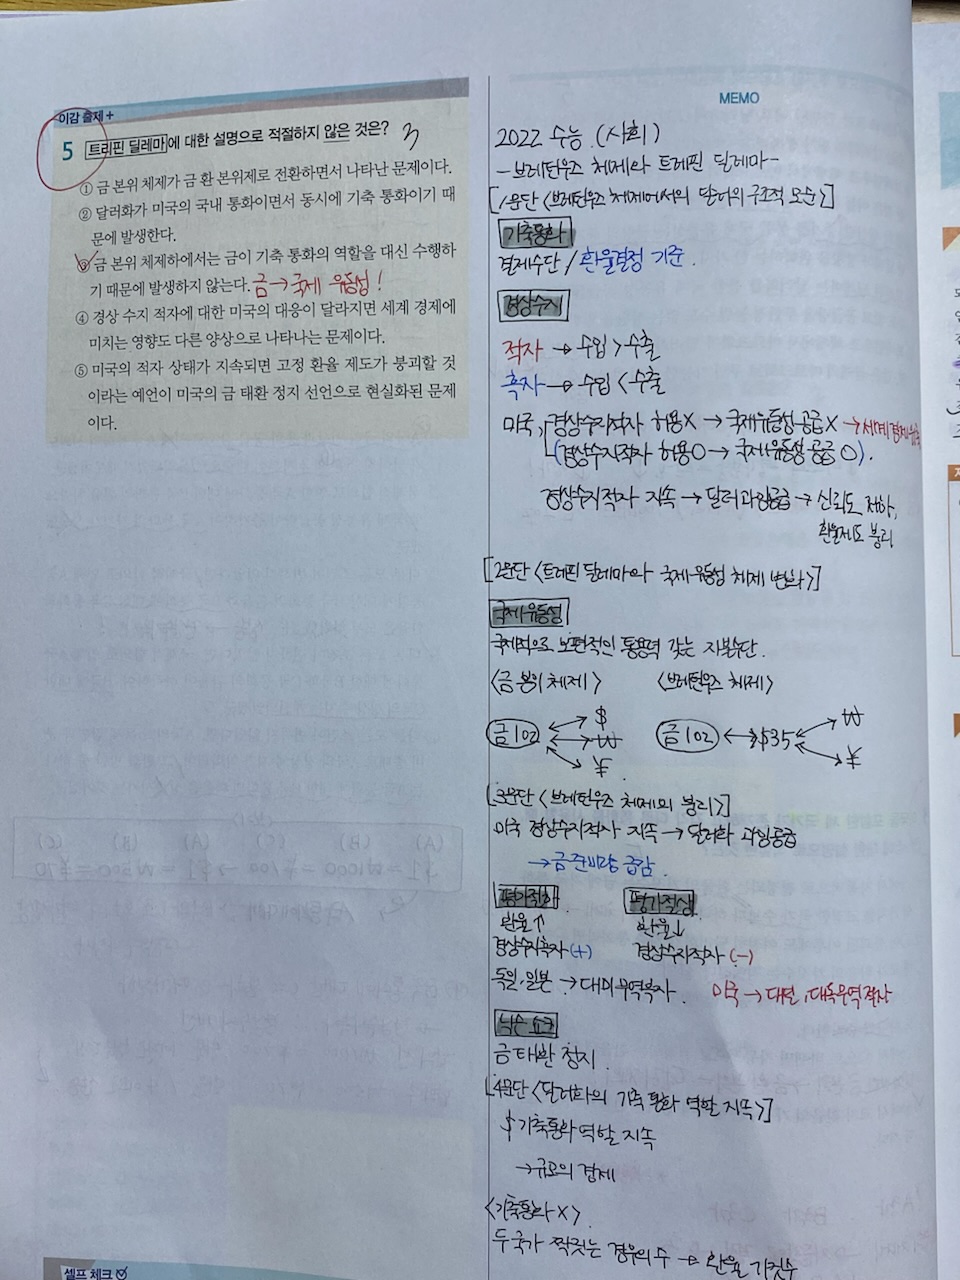 이감 출제+
5 트리핀 딜레마에 대한 설명으로 적절하지 않은 것은? 3
① 금 본위 체제가 금 환 본위제로 전환하면서 나타난 문제이다.
② 달러화가 미국의 국내 통화이면서 동시에 기축 통화이기 때
문에 발생한다.
③ 금 본위 체제하에서는 금이 기축 통화의 역할을 대신 수행하
기 때문에 발생하지 않는다. 금→국제 유동성!
④ 경상 수지 적자에 대한 미국의 대응이 달라지면 세계 경제에
미치는 영향도 다른 양상으로 나타나는 문제이다.
⑤ 미국의 적자 상태가 지속되면 고정 환율 제도가 붕괴할 것
이라는 예언이 미국의 금 태환 정지 선언으로 현실화된 문제
이다.
셀프 체크
MEMO
2022 수능 (사회)
-브레턴우즈 체제와 트리핀 딜레마-
[1문단 <브레턴우즈 체제에서의 달러의 구조적 모순>]
기축통화
결제수단 / 환율결정 기준.
경상수지
적자 → 수입 > 수출
흑자 → 수입 < 수출
미국, 경상수지적자 허용X → 국제유동성 공급X → 세계경제
(경상수지적자 허용O → 국제유동성 공급O).
경상수지적자 지속 → 달러 과잉공급 → 신뢰도 저하,
환율제도 붕괴
[2문단 <트리핀 딜레마와 국제 유동성 체제 변화>]
국제유동성
국제적으로 보편적인 통용력 갖는 지불수단.
<금 본위 체제> <브레턴우즈 체제>
금 1oz $ ₩ ¥
금 1oz ↔ $35 ₩ ¥
[3문단 <브레턴우즈 체제의 붕괴>]
미국 경상수지적자 지속 → 달러화 과잉공급
→ 금 준비량 급감.
평가절하 평가절상
환율↑ 환율↓
경상수지흑자 (+) 경상수지적자 (-)
독일, 일본 → 대미무역흑자. 미국 → 대일, 대독무역적자
닉슨 쇼크
금태환 정지
[4문단 <달러화의 기축 통화 역할 지속>]
$ 기축통화 역할 지속
→ 규모의 경제
<기축통화 X>.
두 국가 짝짓는 경우의 수 → 환율 가짓수